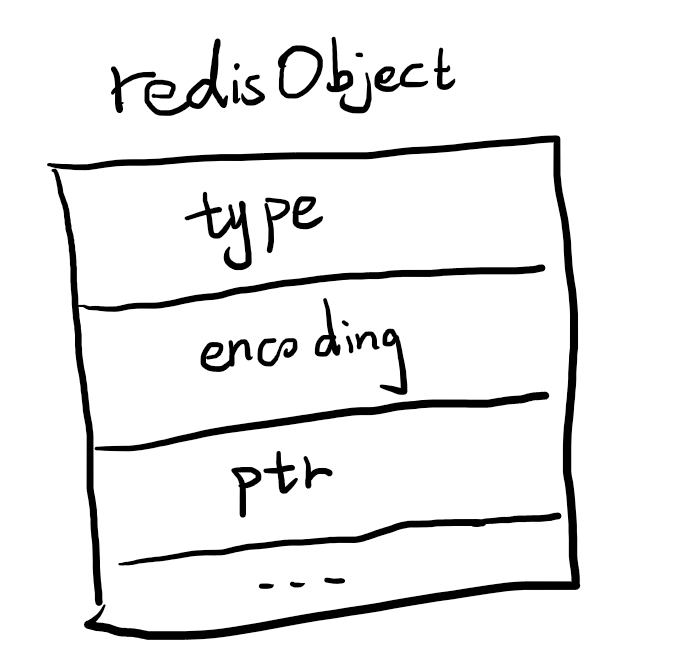 redisObject
type
encoding
ptr
---